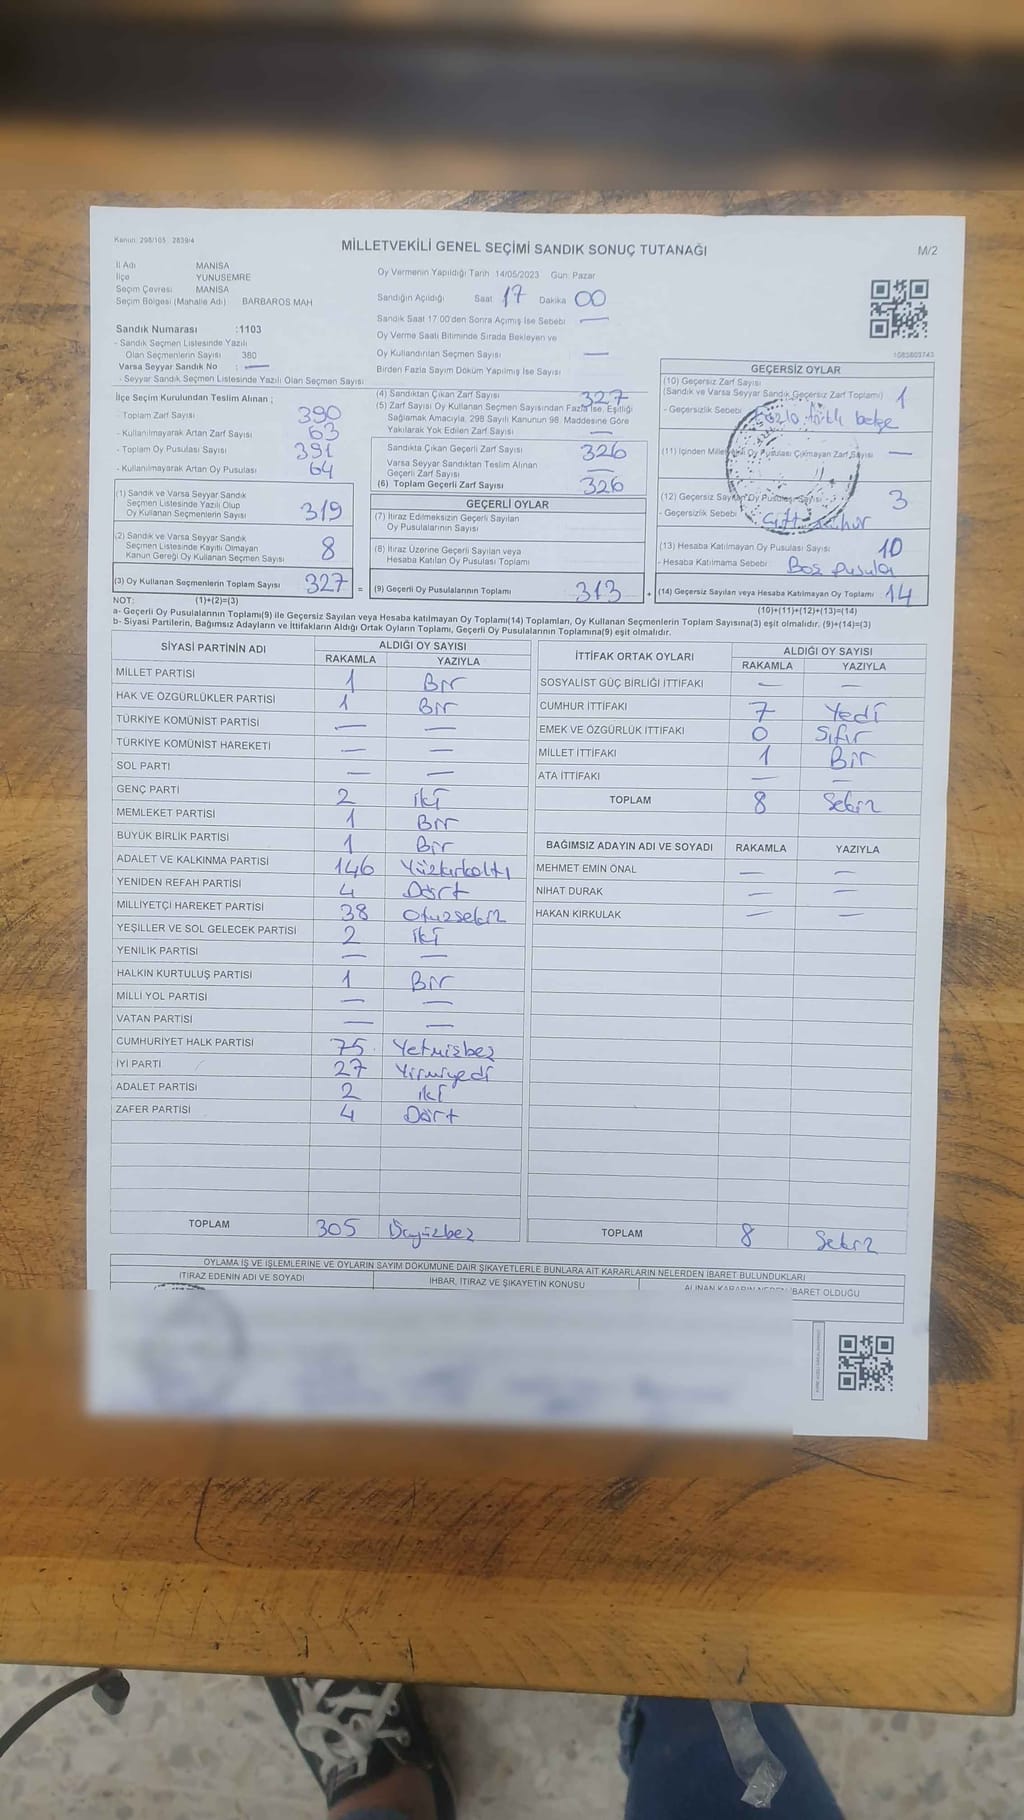 Kanun: 298/105 2839/4
MİLLETVEKİLİ GENEL SEÇİMİ SANDIK SONUÇ TUTANAĞI
M/2
İl Adı MANİSA
İlçe YUNUSEMRE
Seçim Çevresi MANİSA
Seçim Bölgesi (Mahalle Adı) BARBAROS MAH
Sandık Numarası :1103
- Sandık Seçmen Listesinde Yazılı
Olan Seçmenlerin Sayısı 380
Varsa Seyyar Sandık No : —
- Seyyar Sandık Seçmen Listesinde Yazılı Olan Seçmen Sayısı
Oy Vermenin Yapıldığı Tarih 14/05/2023 Gün: Pazar
Sandığın Açıldığı Saat 17 Dakika 00
Sandık Saat 17:00'den Sonra Açılmış İse Sebebi —
Oy Verme Saati Bitiminde Sırada Bekleyen ve
Oy Kullandırılan Seçmen Sayısı —
Birden Fazla Sayım Döküm Yapılmış İse Sayısı
1083803743
İlçe Seçim Kurulundan Teslim Alınan ;
- Toplam Zarf Sayısı 390
- Kullanılmayarak Artan Zarf Sayısı 63
- Toplam Oy Pusulası Sayısı 391
- Kullanılmayarak Artan Oy Pusulası 64
(1) Sandık ve Varsa Seyyar Sandık
Seçmen Listesinde Yazılı Olup
Oy Kullanan Seçmenlerin Sayısı 319
(2) Sandık ve Varsa Seyyar Sandık
Seçmen Listesinde Kayıtlı Olmayan
Kanun Gereği Oy Kullanan Seçmen Sayısı 8
(3) Oy Kullanan Seçmenlerin Toplam Sayısı 327 =
(4) Sandıktan Çıkan Zarf Sayısı 327
(5) Zarf Sayısı Oy Kullanan Seçmen Sayısından Fazla İse, Eşitliği
Sağlamak Amacıyla, 298 Sayılı Kanunun 98. Maddesine Göre
Yakılarak Yok Edilen Zarf Sayısı —
Sandıkta Çıkan Geçerli Zarf Sayısı 326
Varsa Seyyar Sandıktan Teslim Alınan
Geçerli Zarf Sayısı —
(6) Toplam Geçerli Zarf Sayısı 326
GEÇERLİ OYLAR
(7) İtiraz Edilmeksizin Geçerli Sayılan
Oy Pusulalarının Sayısı
(8) İtiraz Üzerine Geçerli Sayılan veya
Hesaba Katılan Oy Pusulası Toplamı
(9) Geçerli Oy Pusulalarının Toplamı 313 +
GEÇERSİZ OYLAR
(10) Geçersiz Zarf Sayısı
(Sandık ve Varsa Seyyar Sandık Geçersiz Zarf Toplamı) 1
- Geçersizlik Sebebi belge
(11) İçinden Oy Pusulası Çıkmayan Zarf Sayısı —
(12) Geçersiz Sayılan Oy Pusulası Sayısı 3
- Geçersizlik Sebebi Çift
(13) Hesaba Katılmayan Oy Pusulası Sayısı 10
- Hesaba Katılmama Sebebi Boş pusula
(14) Geçersiz Sayılan veya Hesaba Katılmayan Oy Toplamı 14
NOT: (1)+(2)=(3) (10)+(11)+(12)+(13)=(14)
a- Geçerli Oy Pusulalarının Toplamı(9) ile Geçersiz Sayılan veya Hesaba katılmayan Oy Toplamı(14) Toplamları, Oy Kullanan Seçmenlerin Toplam Sayısına(3) eşit olmalıdır. (9)+(14)=(3)
b- Siyasi Partilerin, Bağımsız Adayların ve İttifakların Aldığı Ortak Oyların Toplamı, Geçerli Oy Pusulalarının Toplamına(9) eşit olmalıdır.
SİYASİ PARTİNİN ADI ALDIĞI OY SAYISI
RAKAMLA YAZIYLA
MİLLET PARTİSİ 1 Bir
HAK VE ÖZGÜRLÜKLER PARTİSİ 1 Bir
TÜRKİYE KOMÜNİST PARTİSİ — —
TÜRKİYE KOMÜNİST HAREKETİ — —
SOL PARTİ — —
GENÇ PARTİ 2 iki
MEMLEKET PARTİSİ 1 Bir
BÜYÜK BİRLİK PARTİSİ 1 Bir
ADALET VE KALKINMA PARTİSİ 146 Yüzkırkaltı
YENİDEN REFAH PARTİSİ 4 Dört
MİLLİYETÇİ HAREKET PARTİSİ 38 Otuzsekiz
YEŞİLLER VE SOL GELECEK PARTİSİ 2 iki
YENİLİK PARTİSİ — —
HALKIN KURTULUŞ PARTİSİ 1 Bir
MİLLİ YOL PARTİSİ — —
VATAN PARTİSİ — —
CUMHURİYET HALK PARTİSİ 75 Yetmişbeş
İYİ PARTİ 27 Yirmiyedi
ADALET PARTİSİ 2 iki
ZAFER PARTİSİ 4 Dört
TOPLAM 305 Üçyüzbeş
İTTİFAK ORTAK OYLARI ALDIĞI OY SAYISI
RAKAMLA YAZIYLA
SOSYALİST GÜÇ BİRLİĞİ İTTİFAKI — —
CUMHUR İTTİFAKI 7 Yedi
EMEK VE ÖZGÜRLÜK İTTİFAKI 0 Sıfır
MİLLET İTTİFAKI 1 Bir
ATA İTTİFAKI — —
TOPLAM 8 Sekiz
BAĞIMSIZ ADAYIN ADI VE SOYADI RAKAMLA YAZIYLA
MEHMET EMİN ÖNAL — —
NİHAT DURAK — —
HAKAN KIRKULAK — —
TOPLAM 8 Sekiz
OYLAMA İŞ VE İŞLEMLERİNE VE OYLARIN SAYIM DÖKÜMÜNE DAİR ŞİKAYETLERLE BUNLARA AİT KARARLARIN NELERDEN İBARET BULUNDUKLARI
İTİRAZ EDENİN ADI VE SOYADI İHBAR, İTİRAZ VE ŞİKAYETİN KONUSU ALINAN KARARIN NEDEN İBARET OLDUĞU